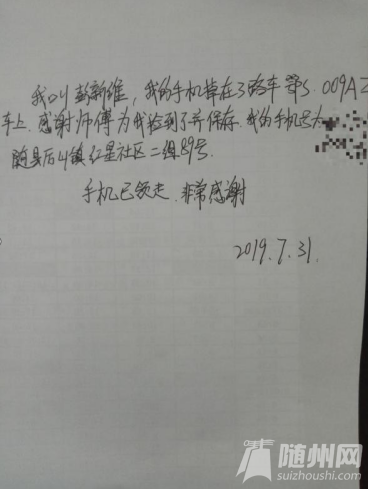 我叫彭新维，我的手机掉在了路车鄂S.009A
车上.感谢师傅为我捡到了并保存.我的手机
随县厉山镇红星社区二组89号
手机已领走.非常感谢
2019.7.31.
随州网
suizhoushi.com